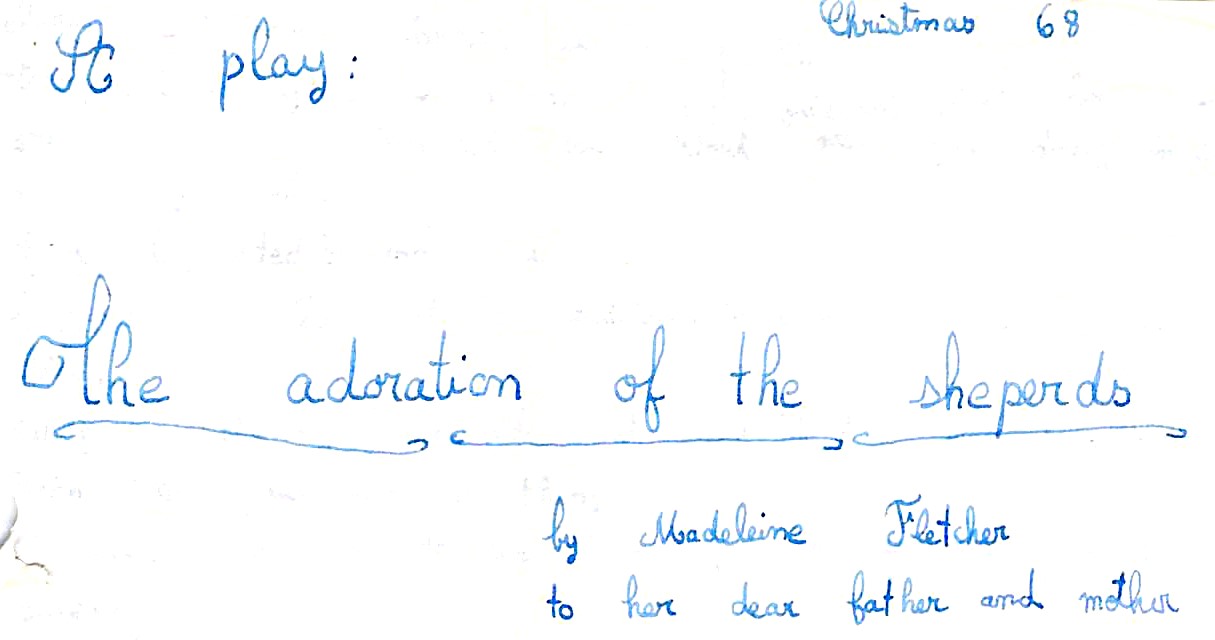 Christmas 68
A play:
The adoration of the sheperds
by Madeleine Fletcher
to her dear father and mother